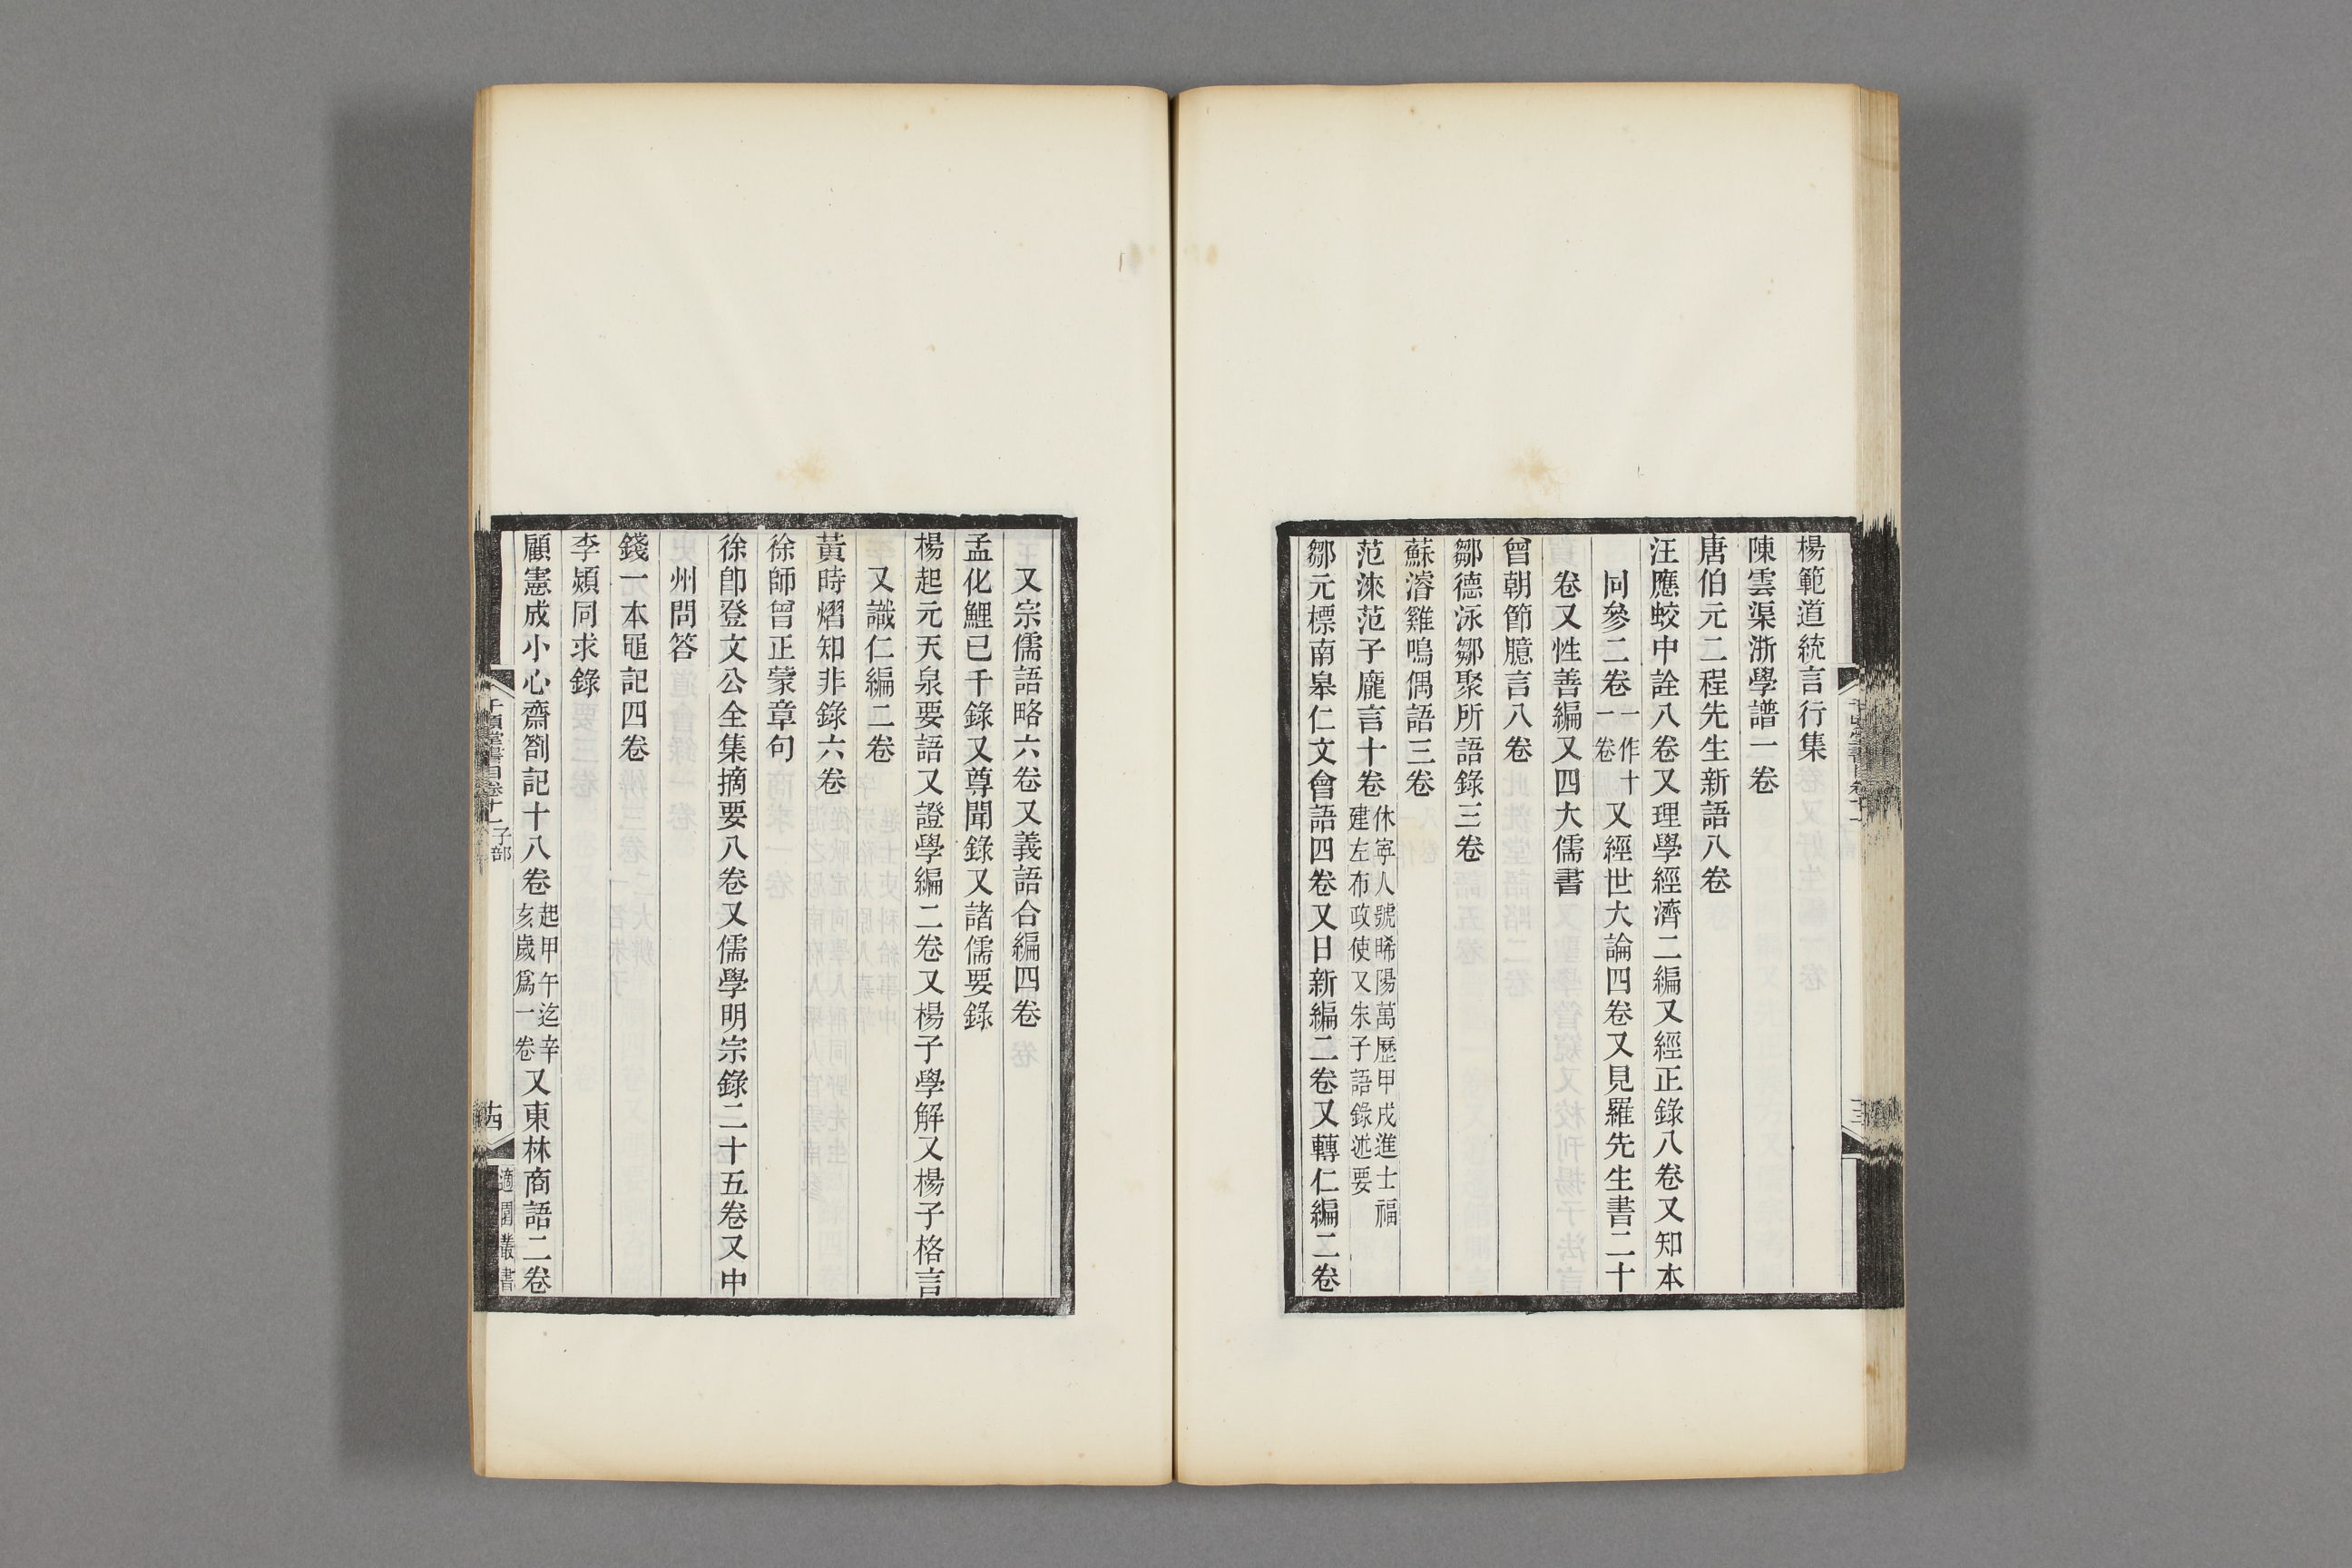 楊範道統言行集
陳雲渠浙學譜一卷
唐伯元二程先生新語八卷
汪應蛟中詮八卷又理學經濟二編又經正錄八卷又知本
同參二卷一作十一卷又經世大論四卷又見羅先生書二十
卷又性善編又四大儒書
曾朝節臆言八卷
鄒德泳鄒聚所語錄三卷
蘇濬雞鳴偶語三卷
范淶范子龎言十卷休寧人號晞陽萬歷甲戌進士福建左布政使又朱子語錄述要
鄒元標南皋仁文會語四卷又日新編二卷又轉仁編二卷
又宗儒語略六卷又義語合編四卷
孟化鯉已千錄又尊聞錄又諸儒要錄
楊起元天泉要語又證學編二卷又楊子學解又楊子格言
又識仁編二卷
黃時熠知非錄六卷
徐師曾正蒙章句
徐卽登文公全集摘要八卷又儒學明宗錄二十五卷又中
州問答
錢一本黽記四卷
李熲同求錄
顧憲成小心齋劄記十八卷起甲午迄辛亥歲爲一卷又東林商語二卷
千頃堂書目卷十一
子部
十四
適園叢書